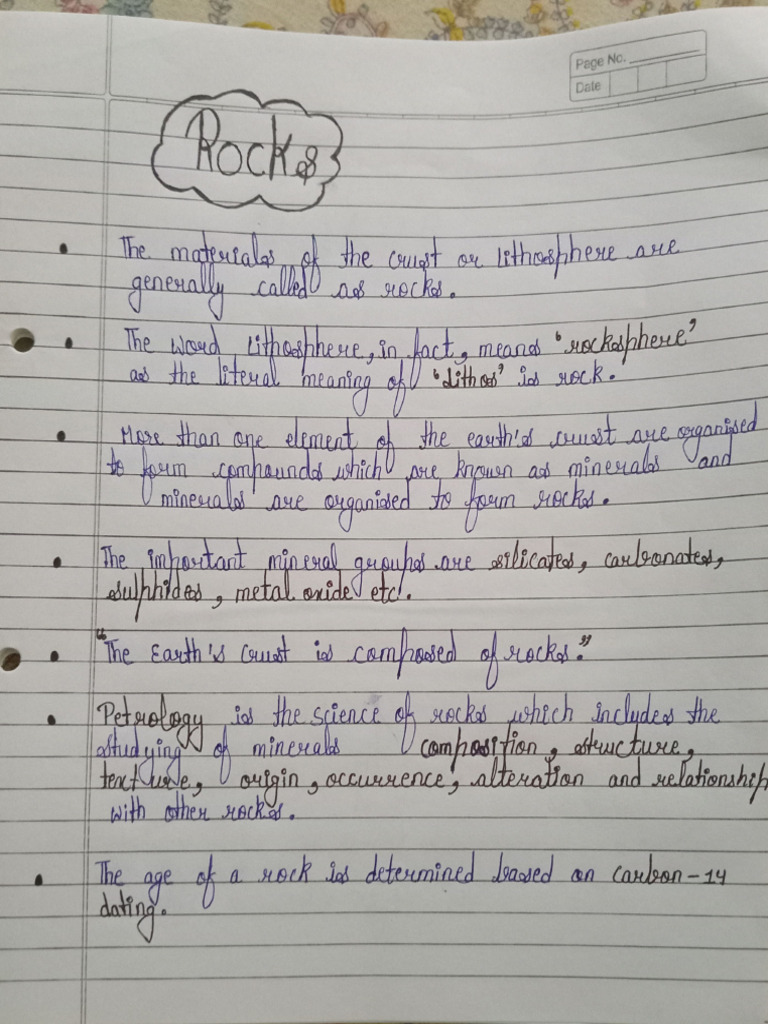 Page No.
Date
Rocks
• The materials of the crust or lithosphere are
generally called as rocks.
• The word lithosphere, in fact, means 'rocksphere'
as the literal meaning of 'lithos' is rock.
• More than one element of the earth's crust are organised
to form compounds which are known as minerals and
minerals are organised to form rocks.
• The important mineral groups are silicates, carbonates,
sulphides, metal oxide etc.
• "The Earth's crust is composed of rocks."
• Petrology is the science of rocks which includes the
studying of minerals composition, structure,
texture, origin, occurrence, alteration and relationship
with other rocks.
• The age of a rock is determined based on carbon-14
dating.